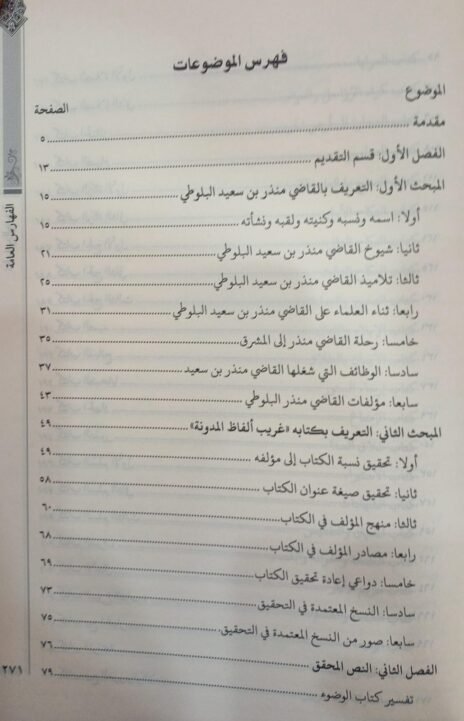 فهرس الموضوعات
الموضوع
الصفحة
مقدمة ٥
الفصل الأول: قسم التقديم ١٣
المبحث الأول: التعريف بالقاضي منذر بن سعيد البلوطي ١٥
أولا: اسمه ونسبه وكنيته ولقبه ونشأته ١٥
ثانيا: شيوخ القاضي منذر بن سعيد البلوطي ٢١
ثالثا: تلاميذ القاضي منذر بن سعيد البلوطي ٢٥
رابعا: ثناء العلماء على القاضي منذر بن سعيد البلوطي ٣١
خامسا: رحلة القاضي منذر إلى المشرق ٣٥
سادسا: الوظائف التي شغلها القاضي منذر بن سعيد ٣٧
سابعا: مؤلفات القاضي منذر البلوطي ٤٣
المبحث الثاني: التعريف بكتابه «غريب ألفاظ المدونة» ٤٩
أولا: تحقيق نسبة الكتاب إلى مؤلفه ٤٩
ثانيا: تحقيق صيغة عنوان الكتاب ٥٨
ثالثا: منهج المؤلف في الكتاب ٦٠
رابعا: مصادر المؤلف في الكتاب ٦٨
خامسا: دواعي إعادة تحقيق الكتاب ٦٩
سادسا: النسخ المعتمدة في التحقيق ٧٣
سابعا: صور من النسخ المعتمدة في التحقيق ٧٥
الفصل الثاني: النص المحقق ٧٦
تفسير كتاب الوضوء ٧٩
الفهارس العامة
٢٧١